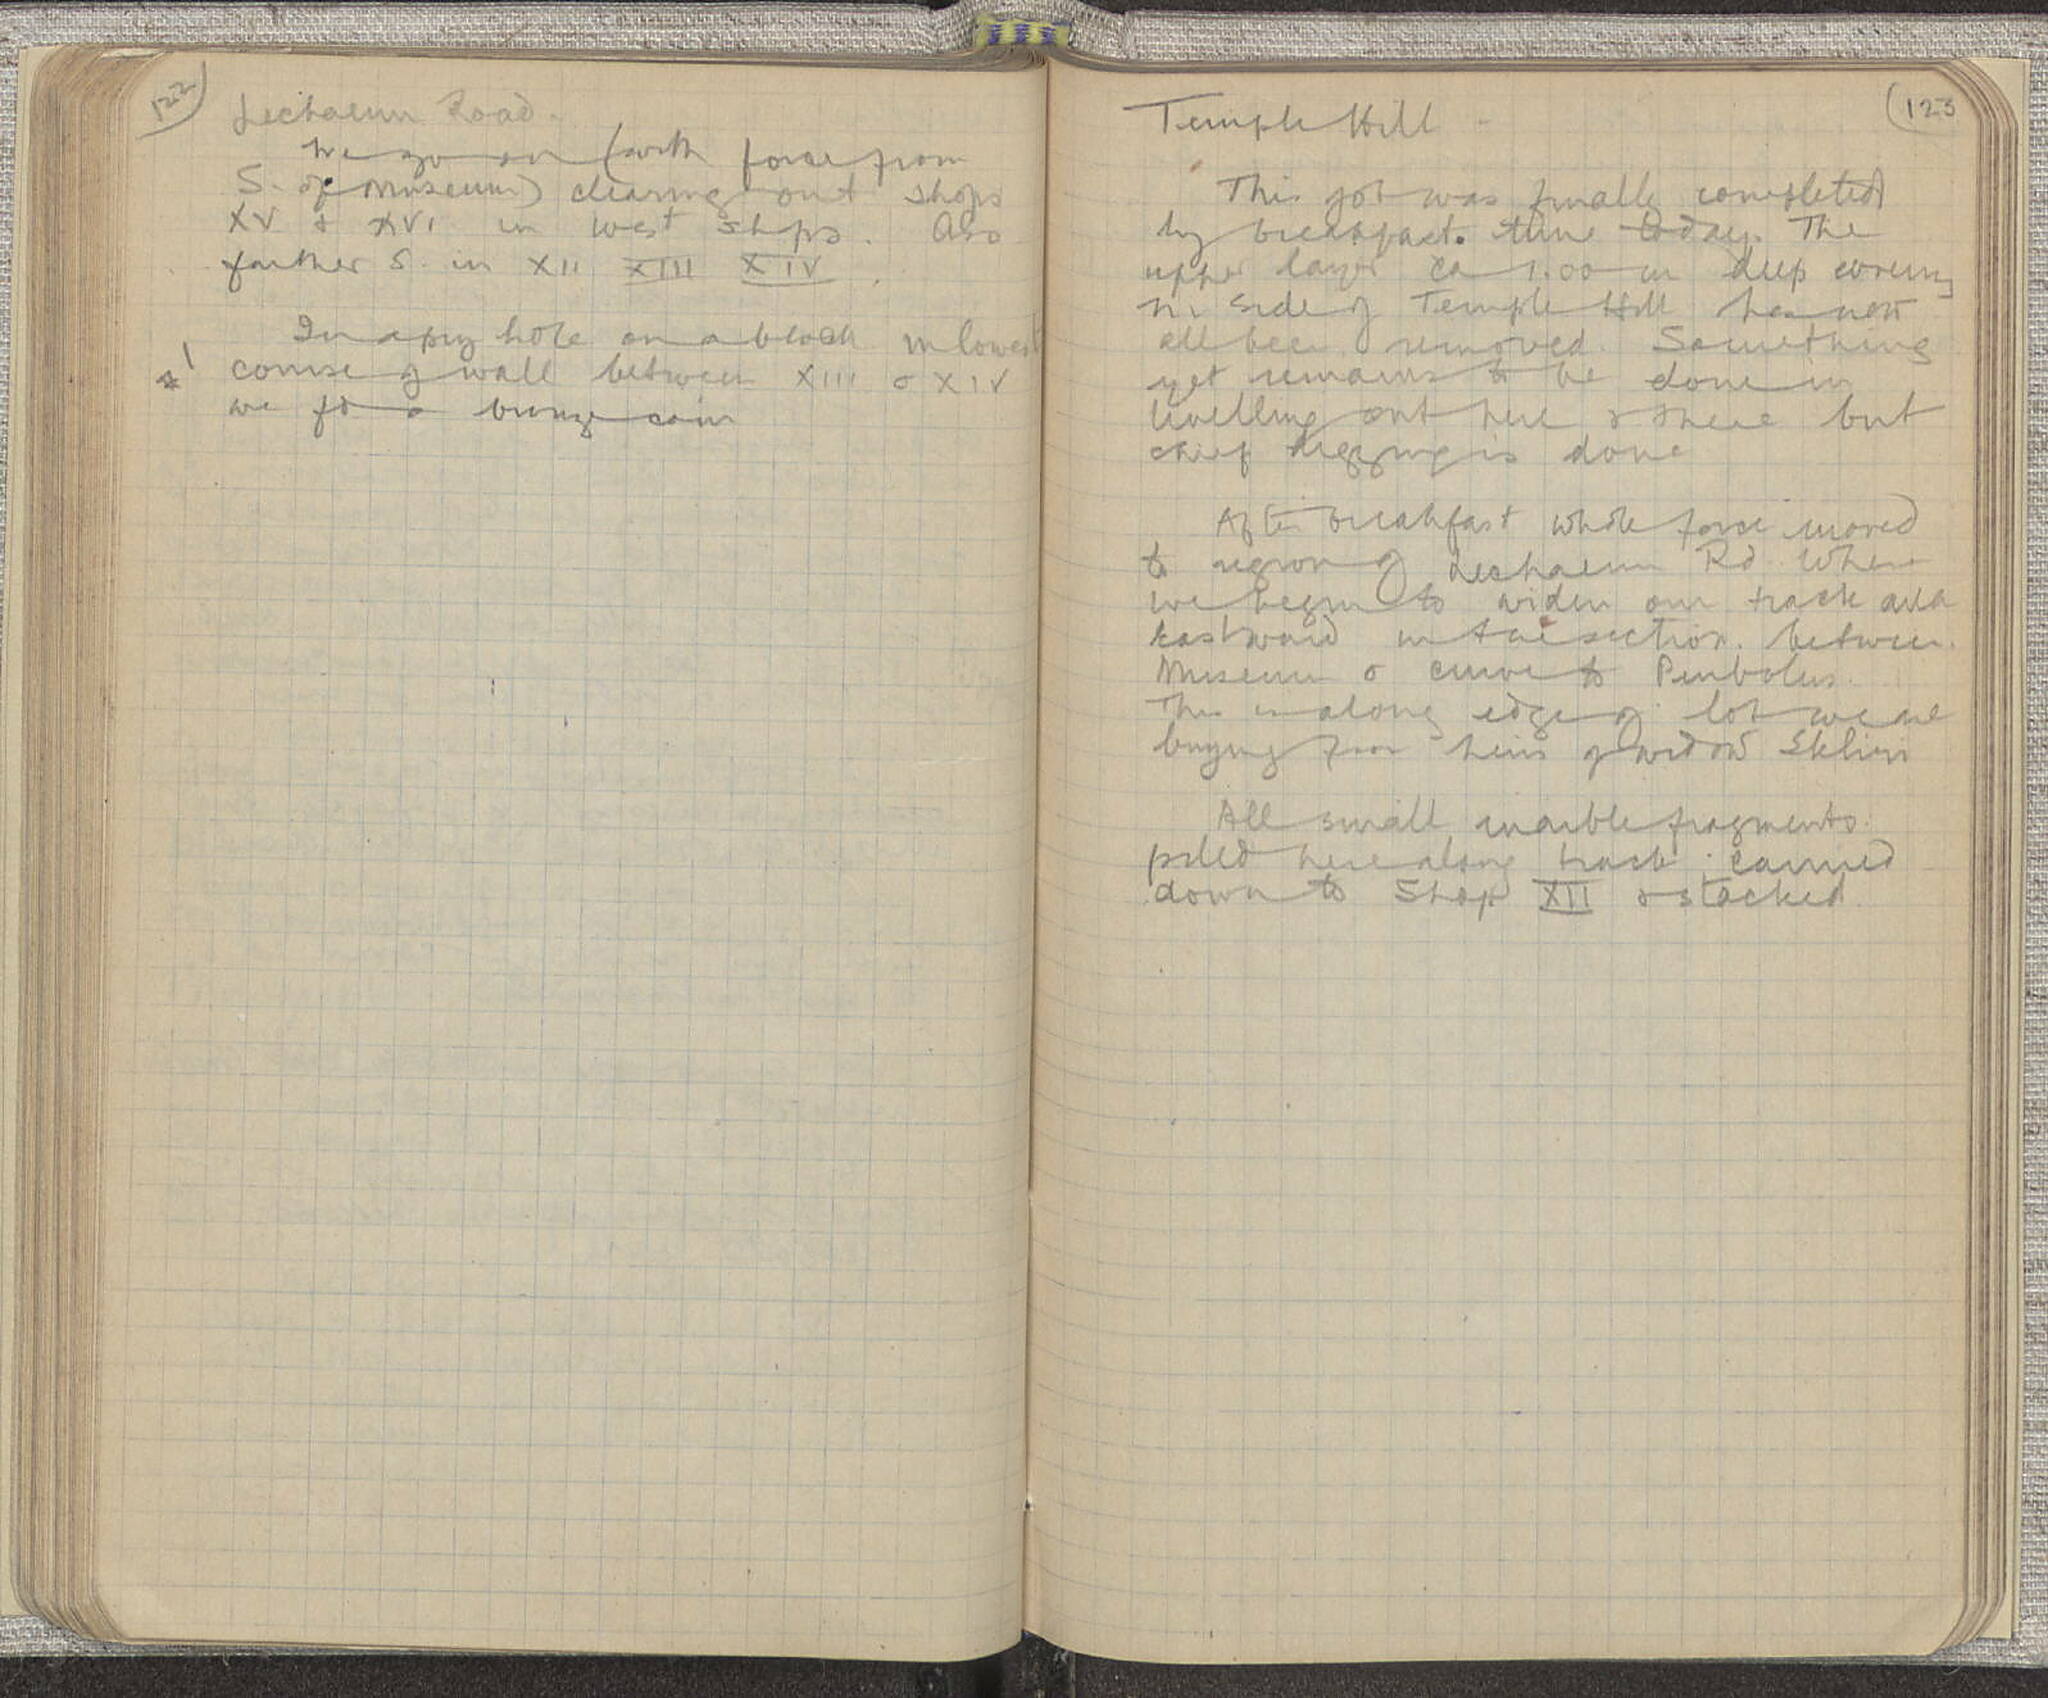 122
Lechaeum Road.
We go on (with force from
S. of Museum) clearing out shops
XV & XVI in west shops. Also
farther S. in XII XIII XIV.
In a pry hole on a block in lowest
* 1
course of wall between XIII & XIV
we fd a bronze coin
123
Temple Hill -
This job was finally completed
by breakfast time today. The
upper layer ca 1.00 m deep covering
N. side of Temple Hill has now
all been removed. Something
yet remains to be done in
levelling out here & there but
chief digging is done
After breakfast whole force moved
to region of Lechaeum Rd where
we begin to widen our track area
Eastward in the section between
Museum & curve to Peribolus.
This is along edge of lot we are
buying from heirs of widow
All small marble fragments
piled here along track carried
down to Shop XII & stacked.